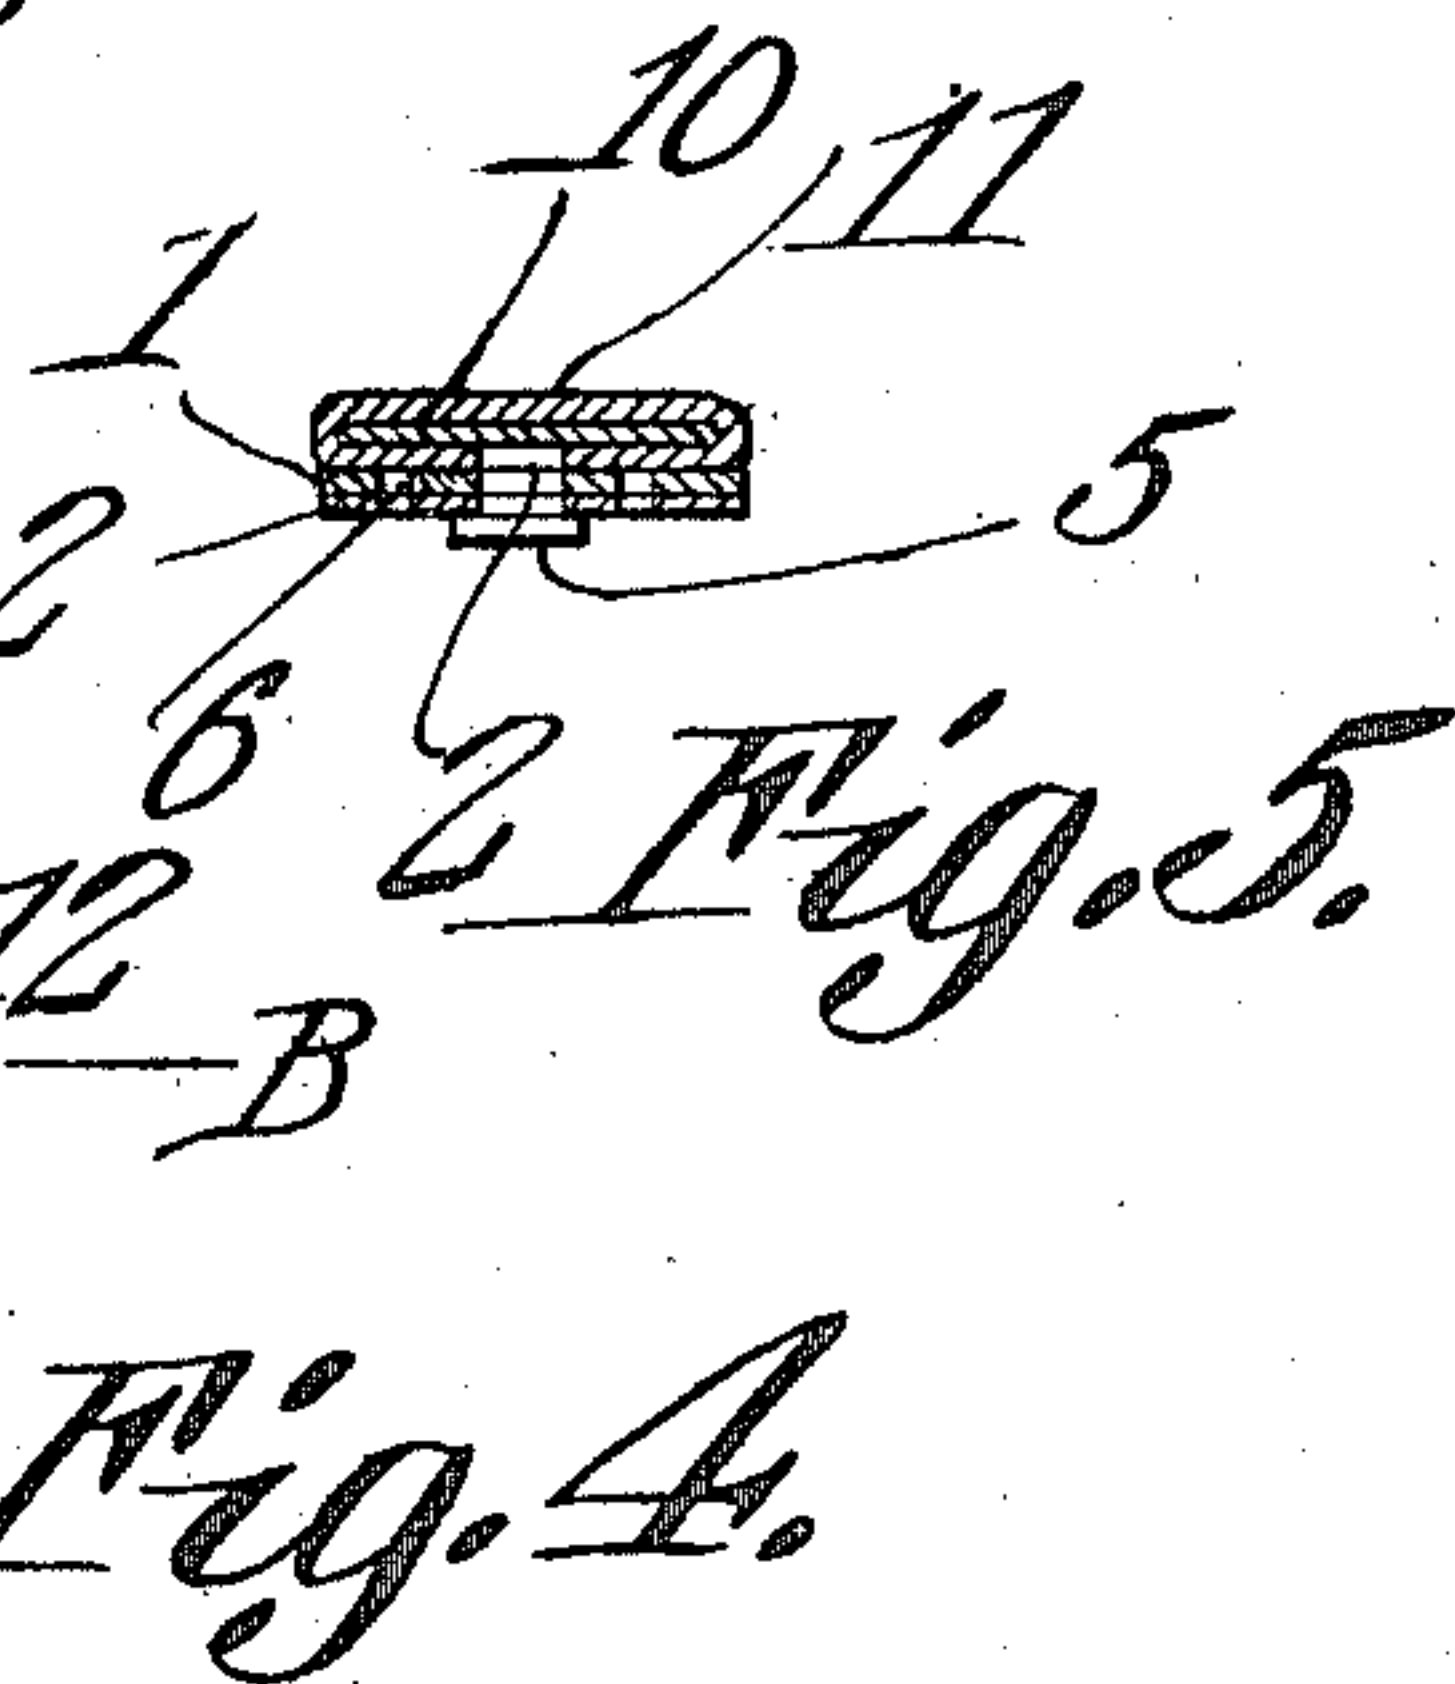 10
11
1
5
2
6
2
Fig. 5.
12
B
Fig. 4.